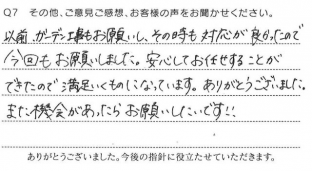 Q7 その他、ご意見ご感想、お客様の声をお聞かせください。
以前、ガーデン工事もお願いし、その時も対応が良かったので
今回もお願いしました。安心してお任せすることが
できたので満足いくものになっています。ありがとうございました。
また機会があったらお願いしたいです!!
ありがとうございました。今後の指針に役立たせていただきます。